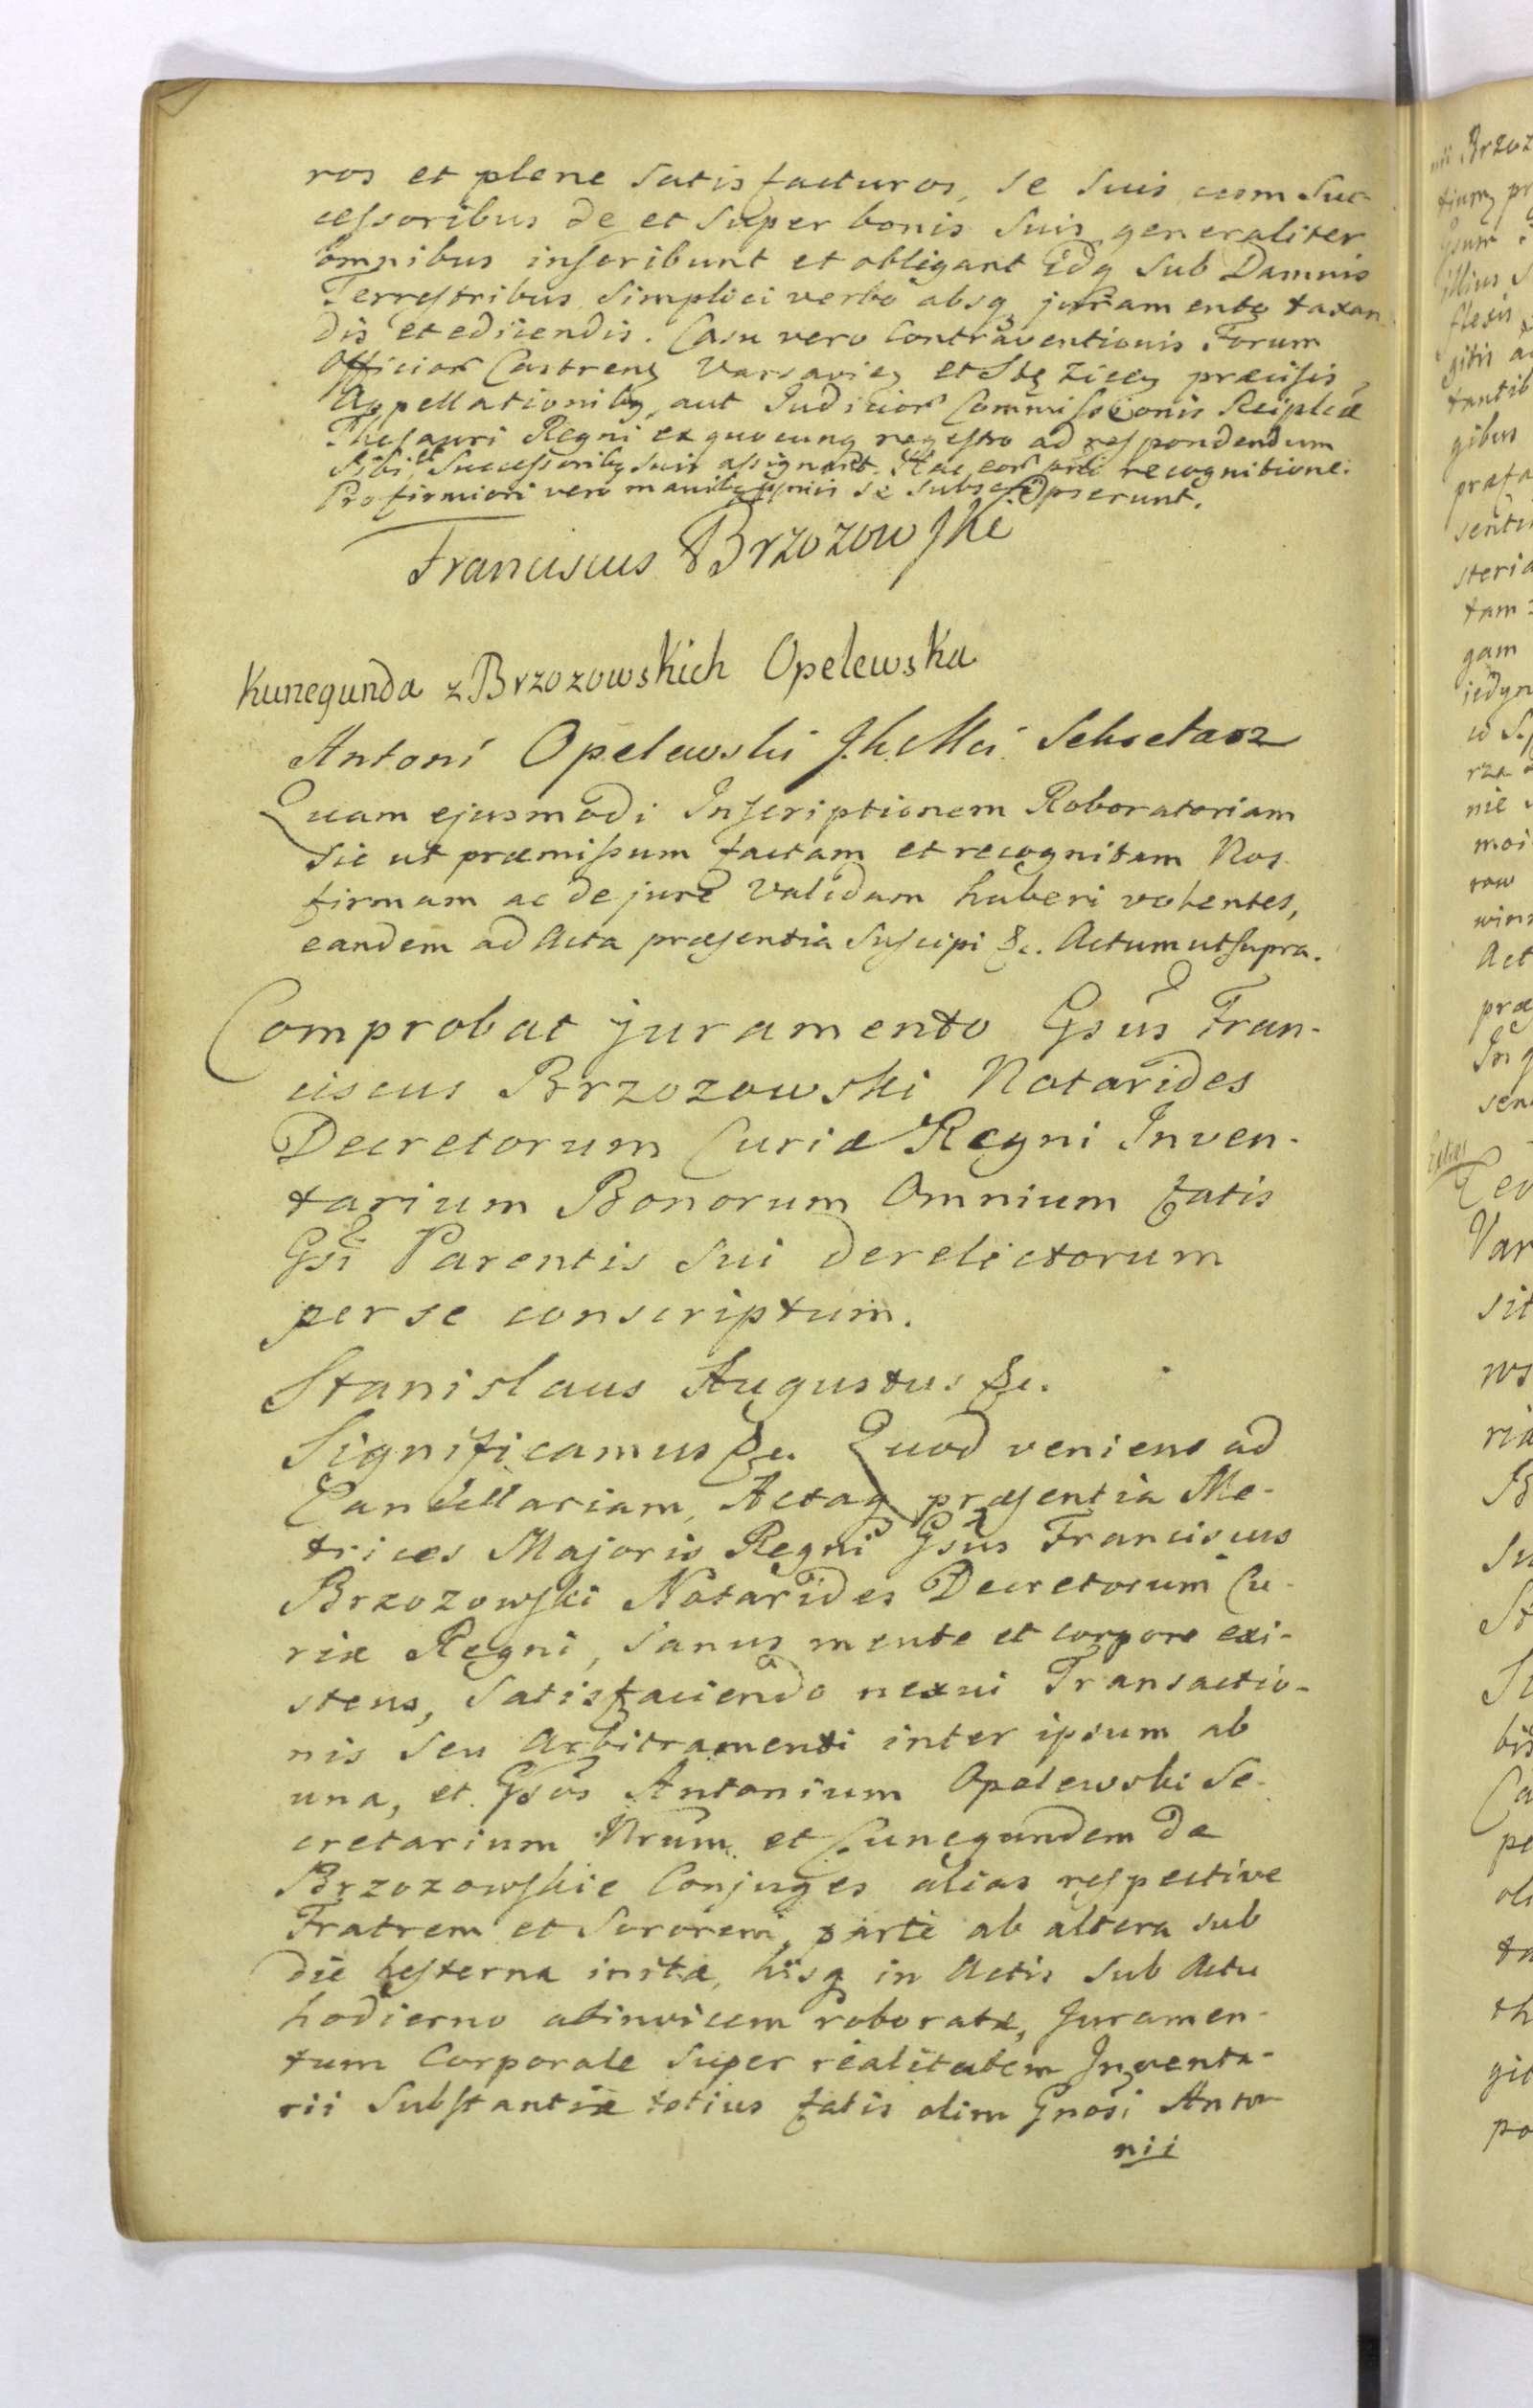 ros et plene satisfacturos, se suis cum Suc-
cessoribus de et super bonis suis generaliter
omnibus inscribunt et obligant Idq sub Damnis
Terrestribus simplici verbo absq juramento taxan-
dis et edicendis. Casu vero Contraventionis Forum
Officior Castren Varsavien et præcisis
Appellationibq aut Judicior Commissionis Reiplcæ
Thesauri Regni ex quocunq regestro ad respondendum
sibi et Successoribq suis assignant. Hac eor recognitione.
Pro firmiori vero manibq se subscripserunt.
Franciscus Brzozowski
Kunegunda z Brzozowskich Opelewska
Antoni Opelewski J. K. Mci Sekretarz
Quam ejusmodi Inscriptionem Roboratoriam
sic ut præmissum factam et recognitam Nos
firmam ac de jure validam haberi volentes,
eandem ad Acta præsentia suscipi &c. Actum ut supra.
Comprobat juramento Gsus Fran-
ciscus Brzozowski Notarides
Decretorum Curiæ Regni Inven-
tarium Bonorum Omnium fatis
Gsi Parentis sui derelictorum
per se conscriptum.
Stanislaus Augustus &c.
Significamus &c. Quod veniens ad
Cancellariam, Actaq præsentia Me-
trices Majoris Regni Gsus Franciscus
Brzozowski Notarides Decretorum Cu-
riæ Regni, sanus mente et corpore exi-
stens, satisfaciendo nexui Transactio-
nis seu Arbitramenti inter ipsum ab
una, et Gsos Antonium Opelewski Se-
cretarium Nrum et Cunegundem de
Brzozowskie Conjuges alias respective
Fratrem et Sororem, parte ab altera sub
die hesterna initæ, hisq in Actis sub Actu
hodierno abinvicem roboratæ, Juramen-
tum Corporale super realitatem Inventa-
rii Substantiæ totius fatis olim Gnosi Anto-
nii